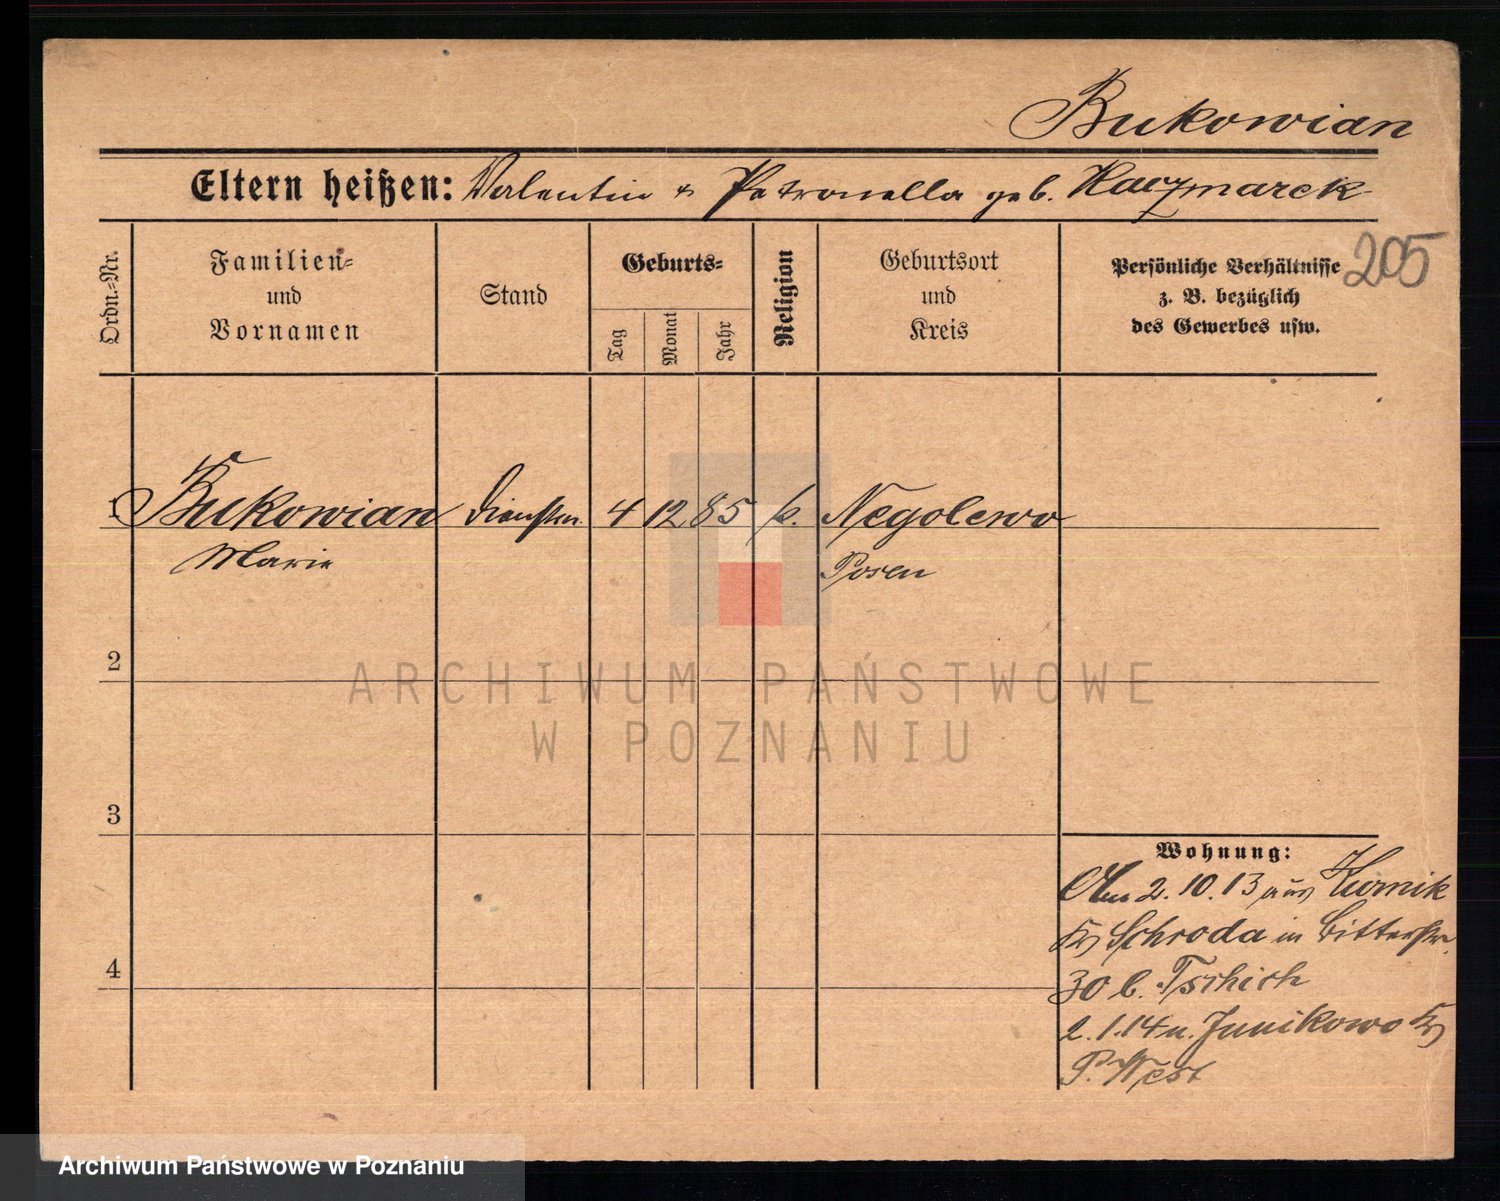 Bukowian
Eltern heißen: Valentin & Petronella geb. Kaczmarek
205
Ordn.-Nr.
Familien- und Vornamen
Stand
Geburts-
Tag
Monat
Jahr
Religion
Geburtsort und Kreis
Persönliche Verhältnisse
z. B. bezüglich
des Gewerbes usw.
1 Bukowian Dienstm. 4 12 85 k. Negolewo
Marie Posen
2
3
4
Wohnung:
2.10.13 aus Kurnik
Kr Schroda in Bitterstr.
30 b. Tschich
2.1.14 n. Junikowo Kr
P. West
ARCHIWUM PAŃSTWOWE
W POZNANIU
Archiwum Państwowe w Poznaniu